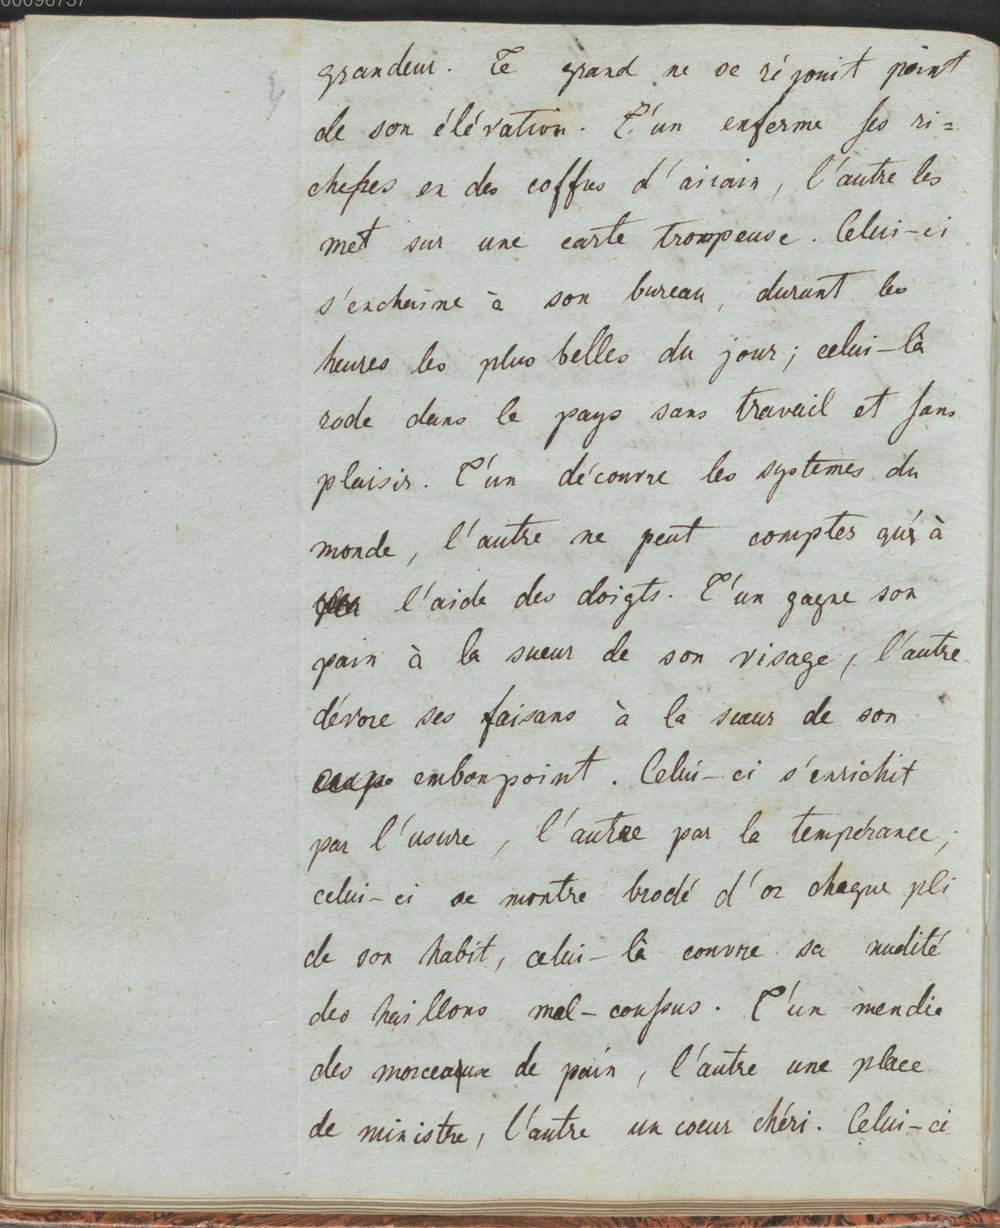 00096737
grandeur. Le grand ne se réjouit point
de son élévation. L'un enferme ses ri=
chesses en des coffres d'airain, l'autre les
met sur une carte trompeuse. Celui-ci
s'enchaîne à son bureau, durant les
heures les plus belles du jour; celui-là
rode dans le pays sans travail et sans
plaisir. L'un découvre les systemes du
monde, l'autre ne peut compter qu'à
l'aide des doigts. L'un gagne son
pain à la sueur de son visage, l'autre
dévore ses faisans à la sueur de son
embonpoint. Celui-ci s'enrichit
par l'usure, l'autre par la tempérance;
celui-ci se montre brodé d'or chaque pli
de son habit, celui-là couvre sa nudité
des haillons mal-coussus. L'un mendie
des morceaux de pain, l'autre une place
de ministre, l'autre un coeur chéri. Celui-ci